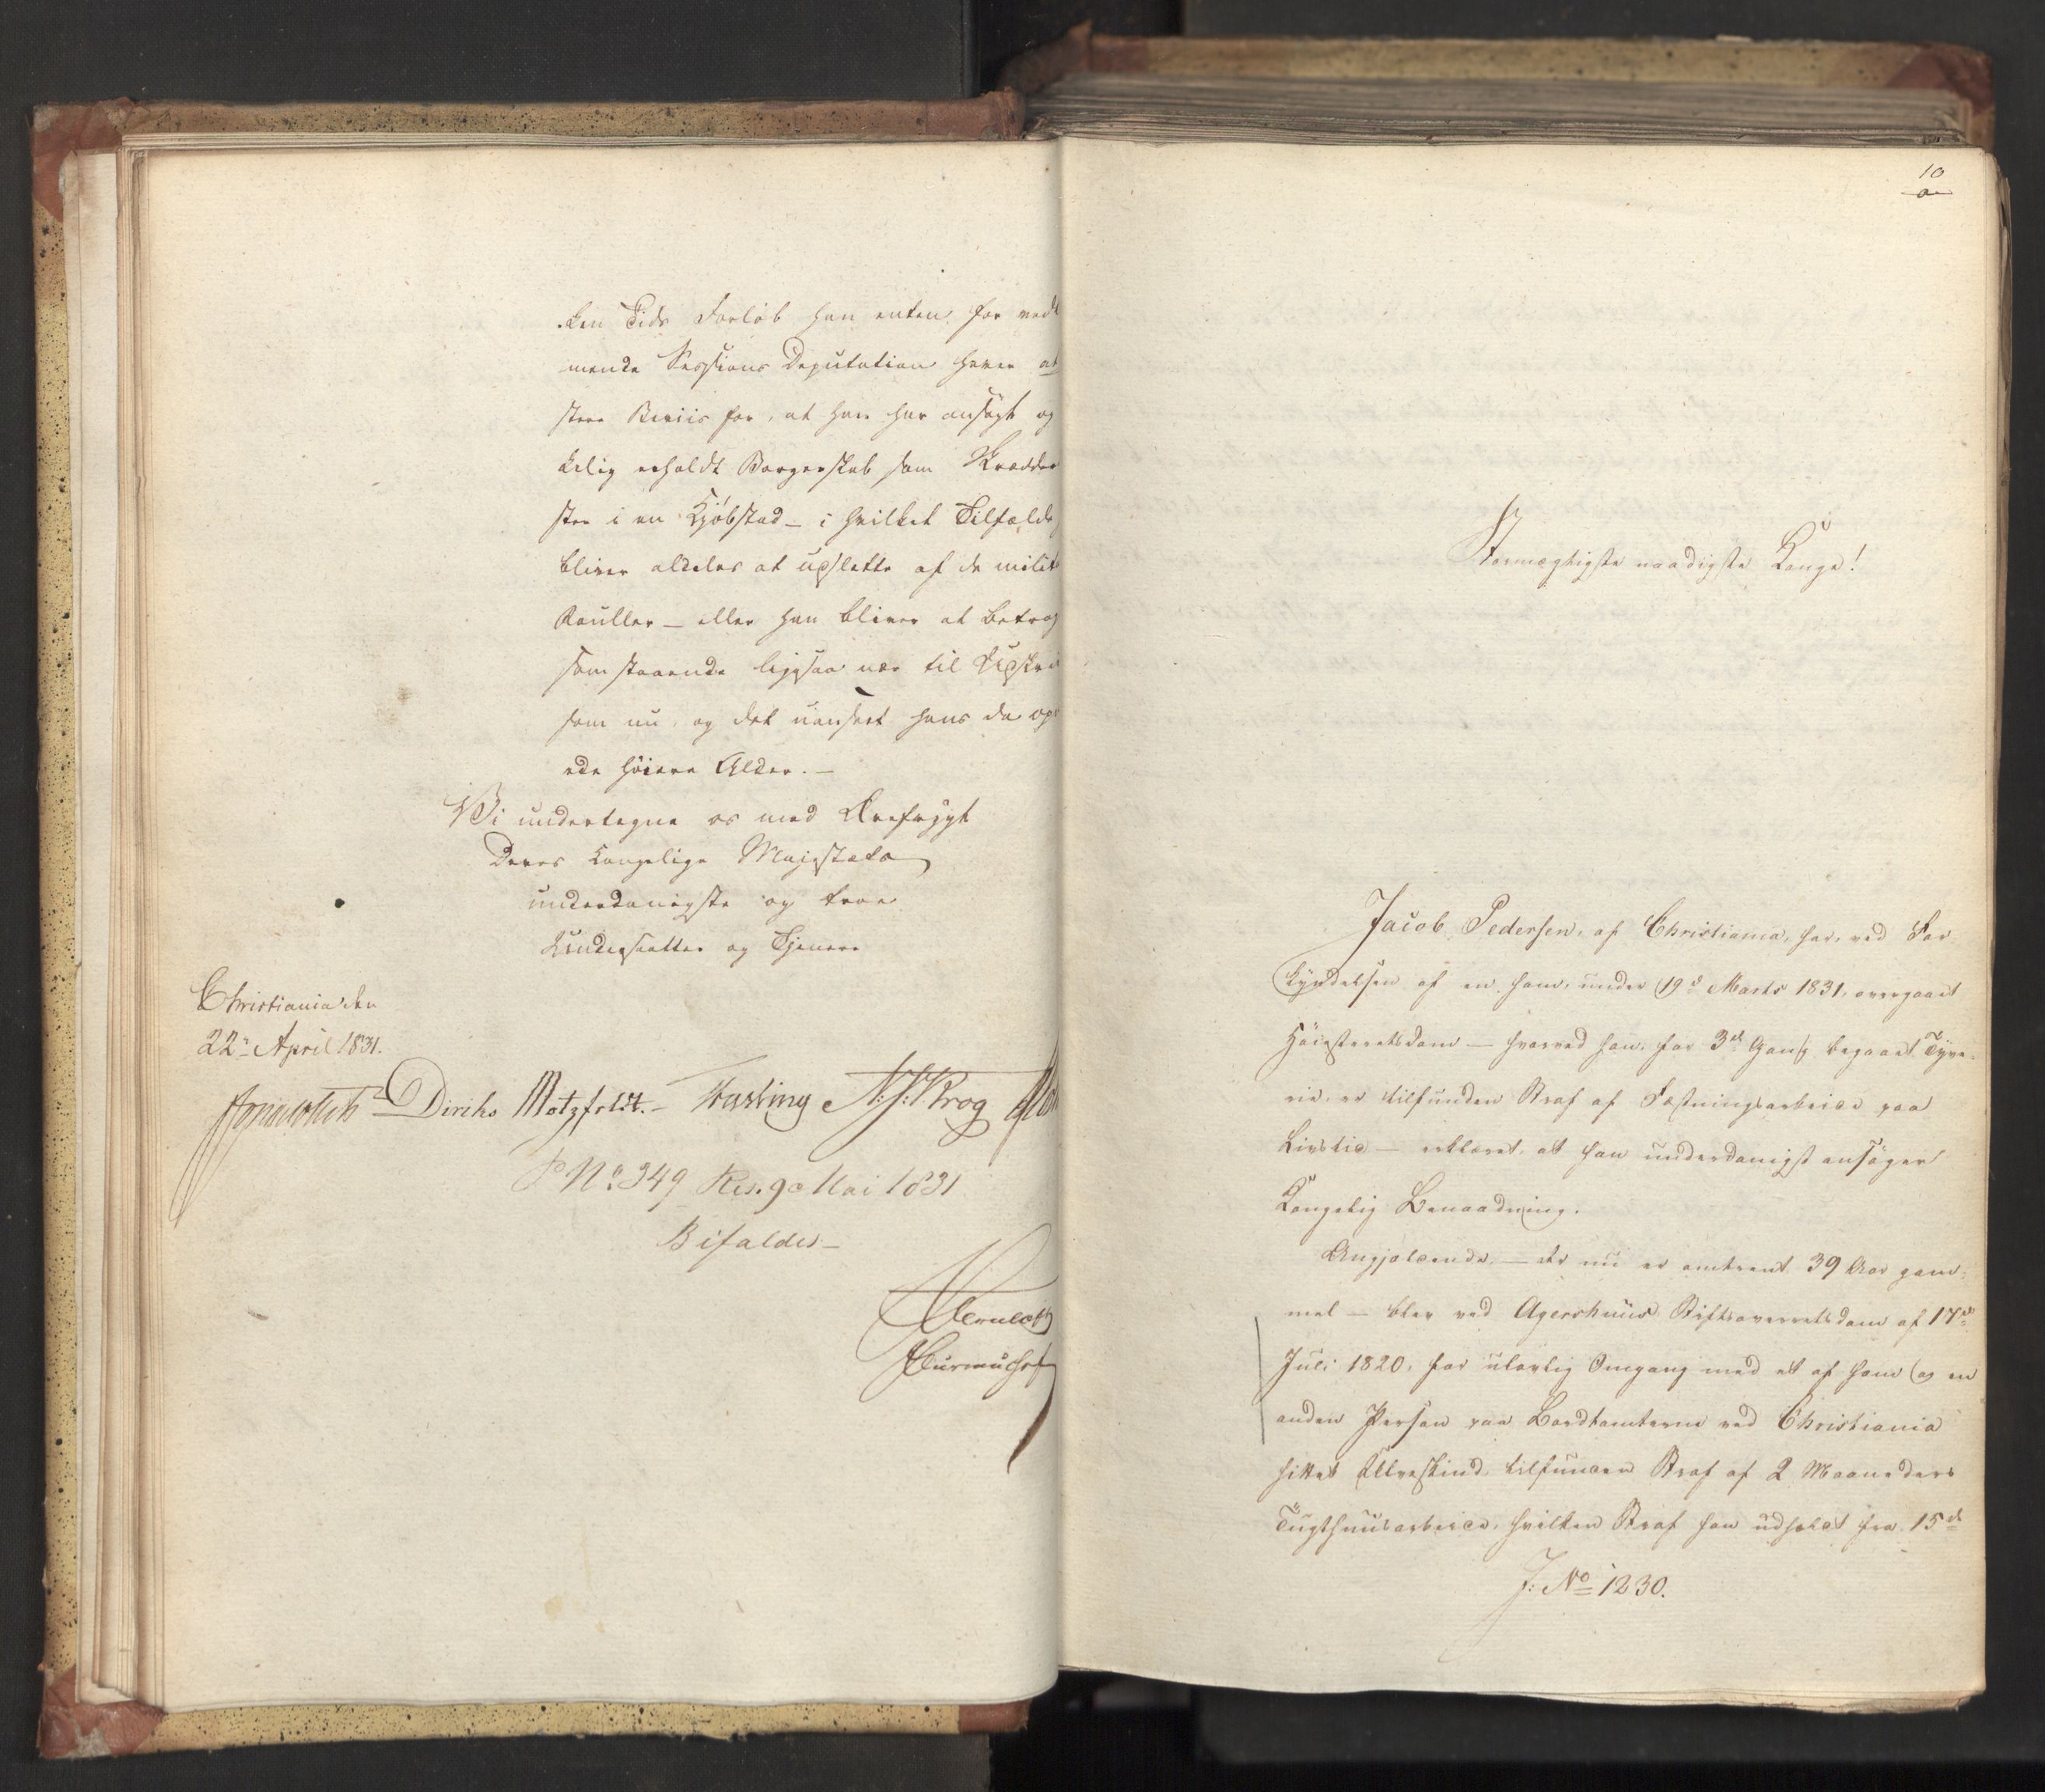 .ken Tids Forløb han enten for ved
mende Sessions Deputation haver at
stere Beviis for, at han har ansøgt og
kelig erholdt Borgerskab som Skrædder
ster i en Kjøbstad – i hvilket Tilfælde
bliver aldeles at udslette af de milit
Rouller – eller han bliver at betrag
som staaende ligesaa nær til Udskriv
som nu, og det uanseet hans da op
ede høiere Alder. –
Vi undertegne os med Ærefrygt
Deres Kongelige Majestæts
underdanigste og troe
Undersaatter og Tjenere
Christiania den
22 April 1831.
Diriks Motzfeldt. – Fasting N. J. Krog
P No 349 Res. 9 Mai 1831
Bifaldes –
10
a
Stormægtigste naadigste Konge!
Jacob Pedersen, af Christiania, har, ved For
kyndelsen af en ham, under 19d Marts 1831, overgaaet
Høiesteretsdom – hvorved han, for 3d Gang begaaet Tyve-
rie, er tilfunden Straf af Fæstningsarbeide paa
Livstid – erklæret, at han underdanigst ansøger
Kongelig Benaadning.
Angjældende – der nu er omtrent 39 Aar gam-
mel – blev ved Agershuus Stiftsoverretsdom af 17d
Juli 1820, for ulovlig Omgang med et af ham og en
anden Person paa Bordtomterne ved Christiania
hittet Ulveskind, tilfunden Straf af 2 Maaneders
Tugthuusarbeide, hvilken Straf han udholdt fra 15d
J: No 1230.